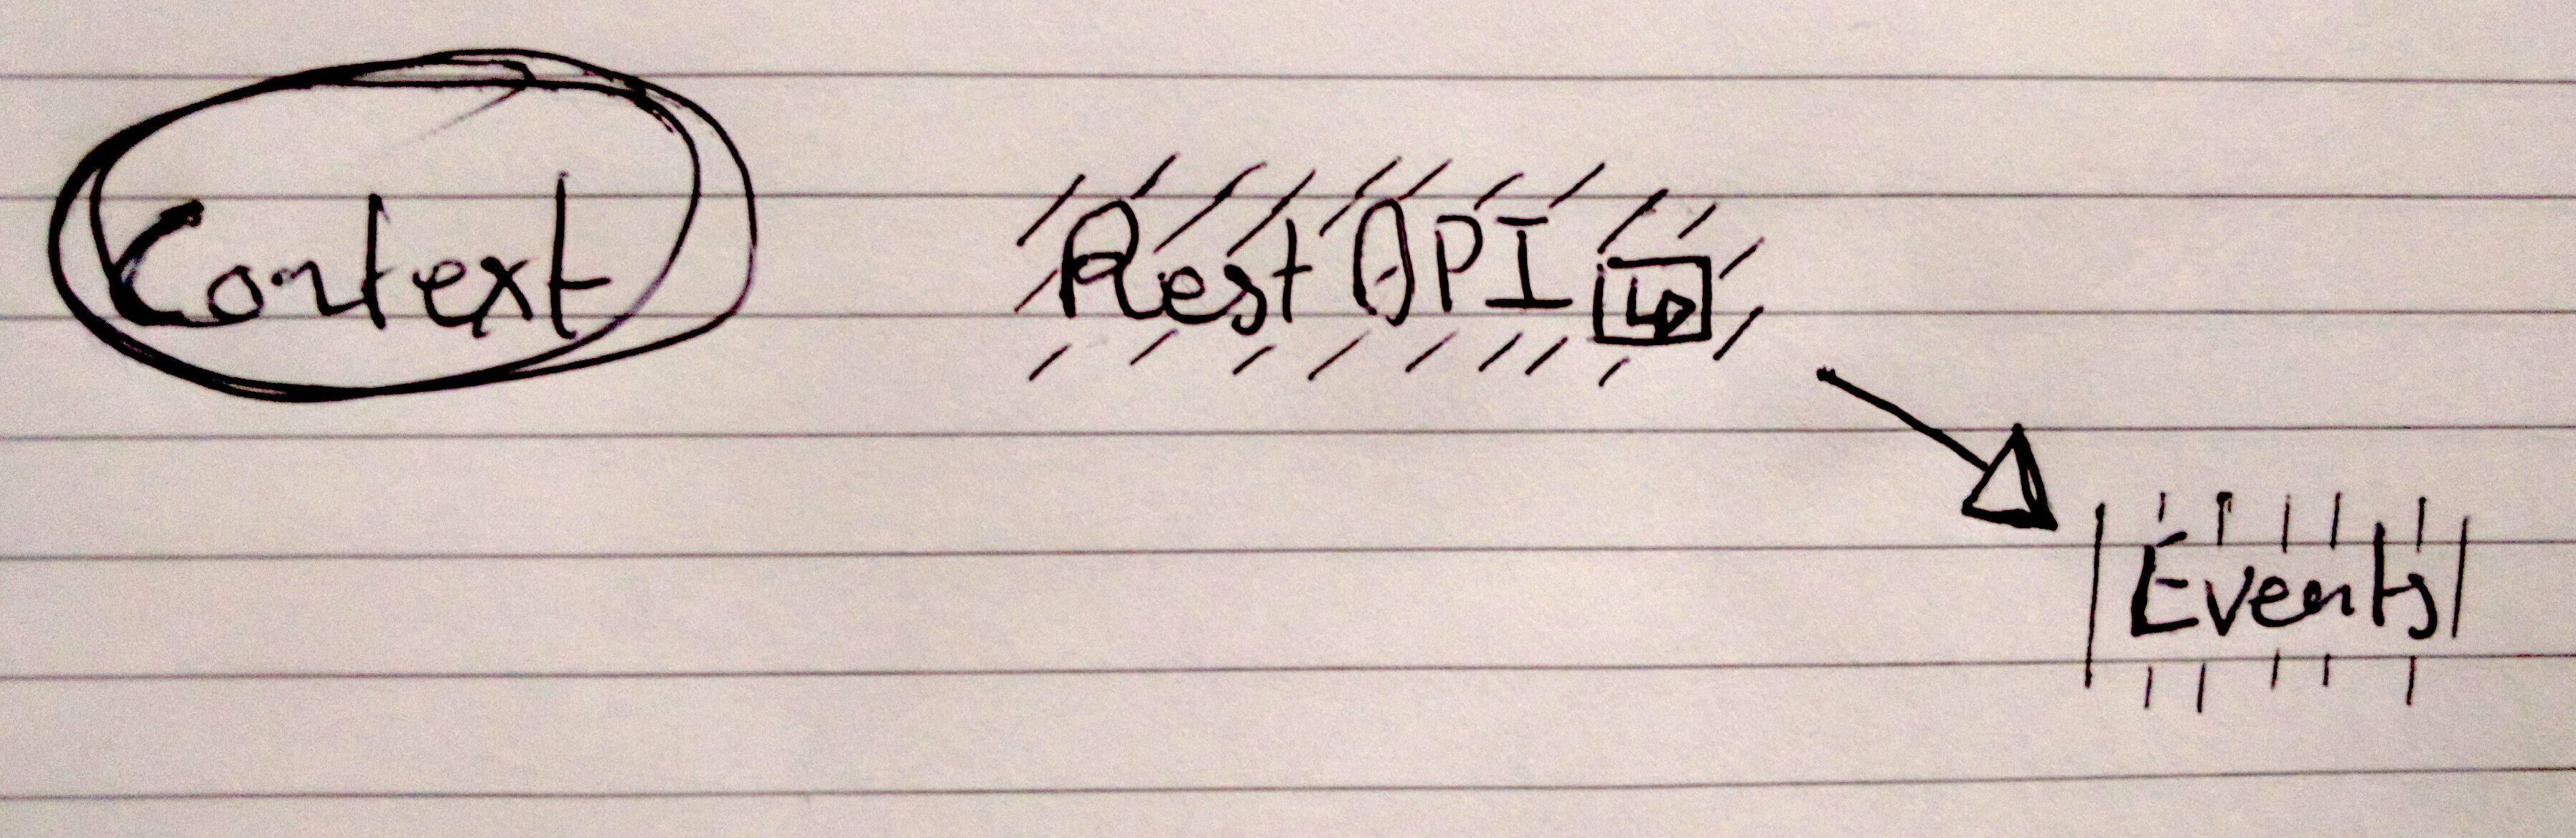 Context
Rest API
Events